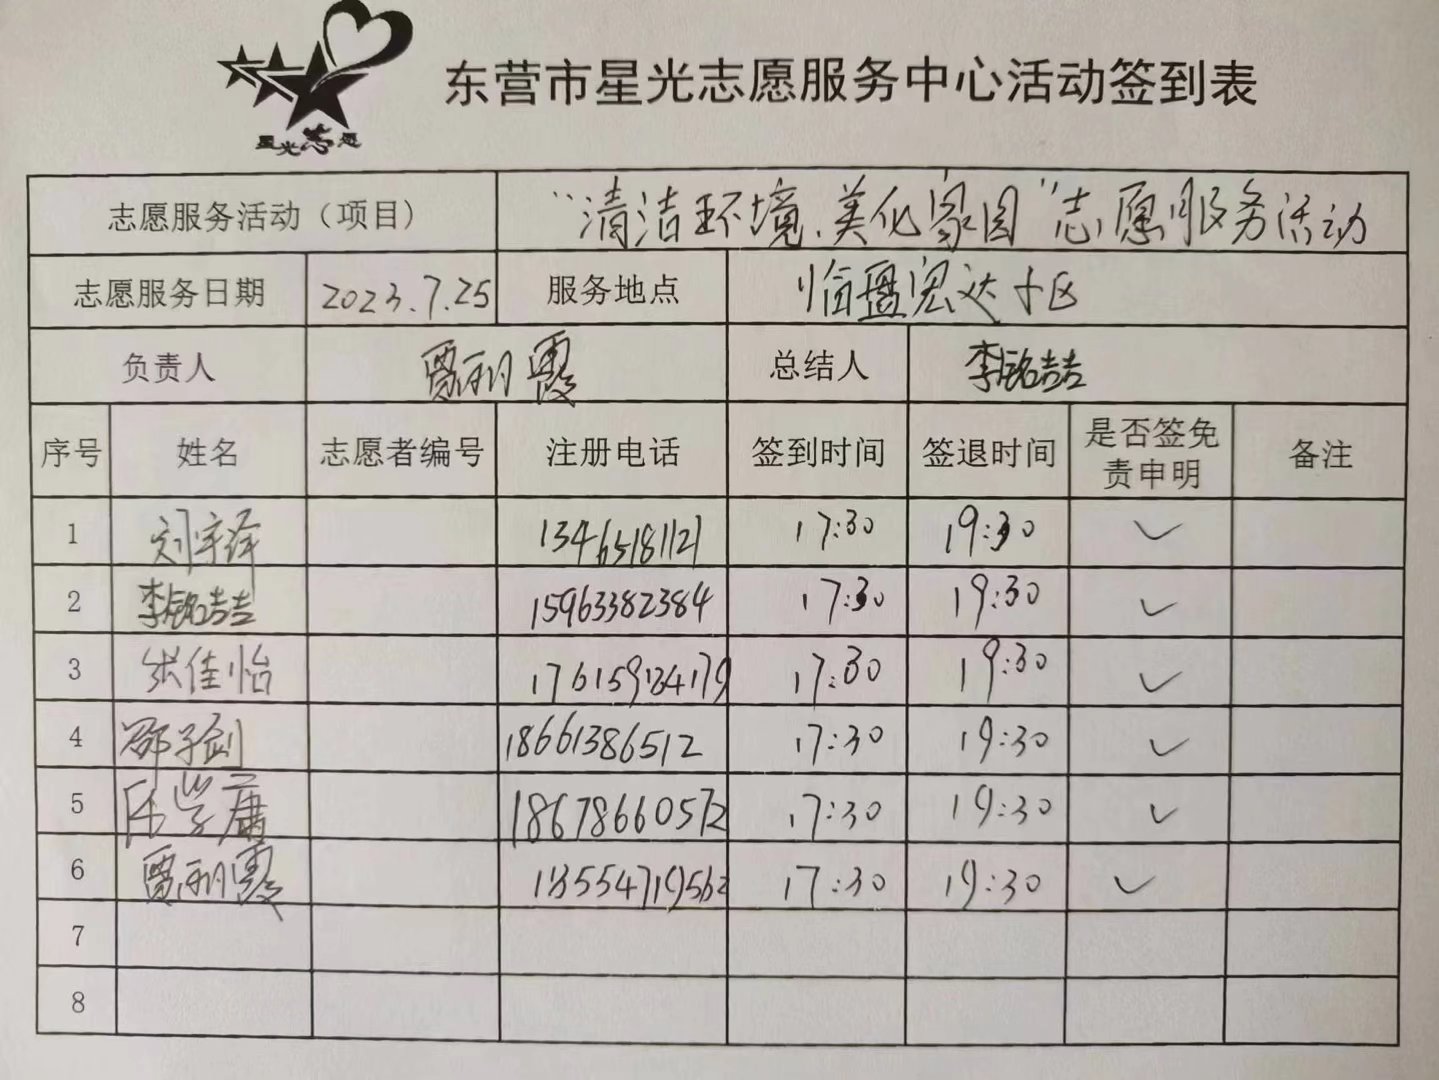 星光志愿
东营市星光志愿服务中心活动签到表
志愿服务活动（项目） “清洁环境、美化家园”志愿服务活动
志愿服务日期 2023.7.25 服务地点 临盘宏达小区
负责人 贾利霞 总结人 李铭喆
序号 姓名 志愿者编号 注册电话 签到时间 签退时间 是否签免责申明 备注
1 刘宇泽 13465181121 17:30 19:30 ✓
2 李铭喆 15963382384 17:30 19:30 ✓
3 张佳怡 17:30 19:30 ✓
4 邵子剑 18661386512 17:30 19:30 ✓
5 18678660572 17:30 19:30 ✓
6 贾利霞 17:30 19:30 ✓
7
8